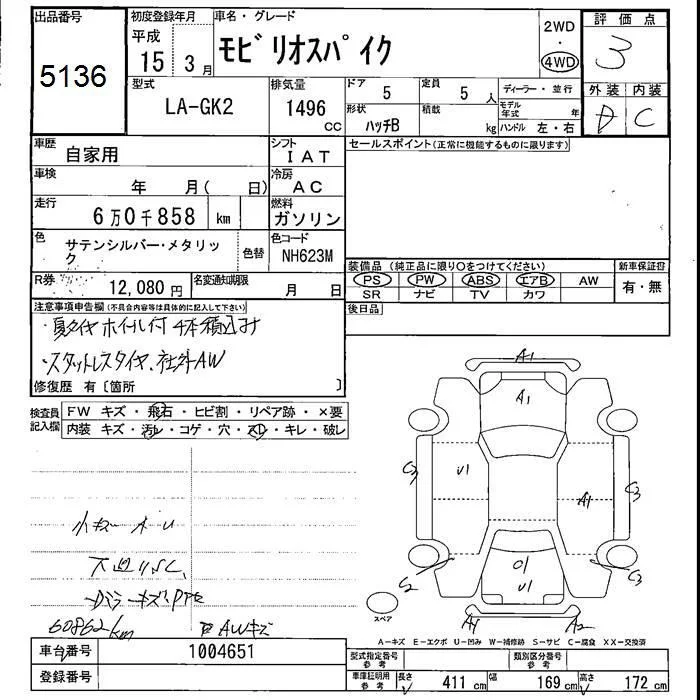 出品番号
5136
初度登録年月
平成
15 3月
車名・グレード
モビリオスパイク
2WD
・
4WD
評価点
3
型式
LA-GK2
排気量
1496
cc
ドア
5
定員
5人
ディーラー・並行
モデル年式 年
形状
ハッチB
積載
kg
ハンドル 左・右
外装 内装
D C
車歴
自家用
シフト
IAT
セールスポイント(正常に機能するものに限ります)
車検
年 月( 日)
冷房
AC
走行
6万0千858 km
燃料
ガソリン
色
サテンシルバー・メタリック
色替
色コード
NH623M
装備品 (純正品に限り○をつけてください)
新車保証書
PS PW ABS エアB AW
SR ナビ TV カワ
有・無
R券
12,080円
名変通知期限
月 日
後日品
注意事項申告欄(不具合内容等は具体的に記入して下さい)
・夏タイヤホイル付 4本積込み
・スタットレスタイヤ、社外AW
修復歴 有〔箇所 〕
検査員記入欄
FW キズ・飛石・ヒビ割・リペア跡・×要
内装 キズ・汚レ・コゲ・穴・スレ・キレ・破レ
小キズ A U
下廻りSC
60862km
AWキズ
A1
A1
U1
C3
C3
A1
C2
U1
A1
A2
スペア
A-キズ E-エクボ U-凹み W-補修跡 S-サビ C-腐食 XX-交換済
車台番号
1004651
登録番号
型式指定番号
参考
類別区分番号
参考
車庫証明用
参考
長さ
411 cm
幅
169 cm
高さ
172 cm